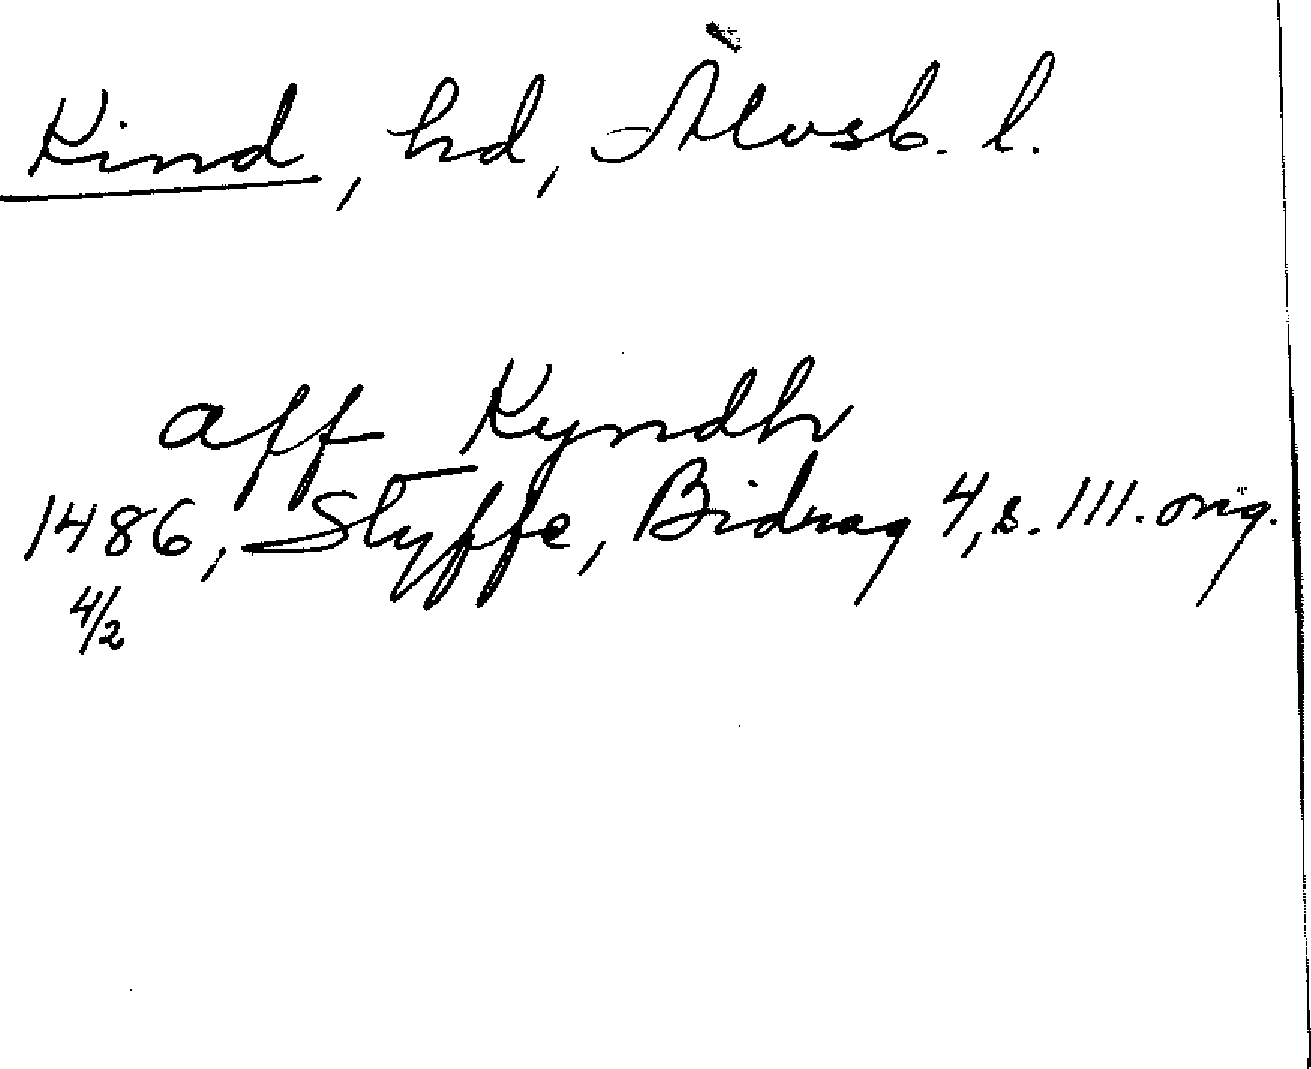 Kind, hd, Älvsb. l.
aff Kyndh
1486, Styffe, Bidrag 4, s. 111. orig.
4/2